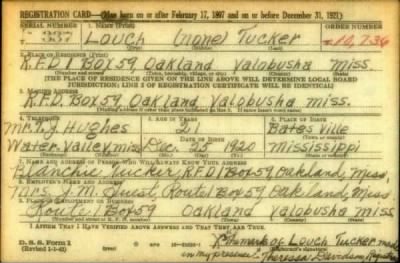 REGISTRATION CARD—(Men born on or after February 17, 1897 and on or before December 31, 1921)
SERIAL NUMBER 1. NAME (Print) ORDER NUMBER
Louch (none) Tucker 10,736
(First) (Middle) (Last)
2. PLACE OF RESIDENCE (Print)
R.F.D 1 Box 59 Oakland Yalobusha Miss
(Number and street) (Town, township, village, or city) (County) (State)
[THE PLACE OF RESIDENCE GIVEN ON THE LINE ABOVE WILL DETERMINE LOCAL BOARD
JURISDICTION; LINE 2 OF REGISTRATION CERTIFICATE WILL BE IDENTICAL]
3. MAILING ADDRESS
R.F.D. Box 59 Oakland Yalobusha miss.
4. TELEPHONE 5. AGE IN YEARS 6. PLACE OF BIRTH
Mr. T. J Hughes 21 Batesville
DATE OF BIRTH
Water Valley, miss Dec. 25 1920 Mississippi
7. NAME AND ADDRESS OF PERSON WHO WILL ALWAYS KNOW YOUR ADDRESS
Blanchie Tucker, R.F.D 1 Box 59, Oakland, Miss.
8. EMPLOYER'S NAME AND ADDRESS
Mrs. J. M. Route 1 Box 59 Oakland, Miss
9. PLACE OF EMPLOYMENT OR BUSINESS
Route 1 Box 59 Oakland Yalobusha miss
(Number and street or R. F. D. number) (Town) (County) (State)
I AFFIRM THAT I HAVE VERIFIED ABOVE ANSWERS AND THAT THEY ARE TRUE.
D. S. S. Form 1 X the mark of Louch Tucker made
(Revised 1-1-42) in my presence Theressa Davidson, Registrar